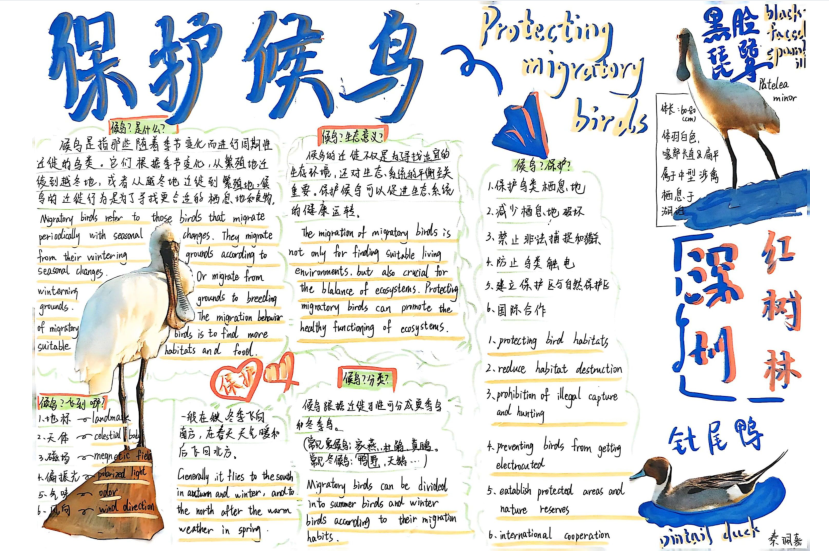 保护候鸟
Protecting
migratory
birds
黑脸
琵鹭
black
faced
spoon
ill
Platelea
minor
体长:60-80
(cm)
体羽白色,
属于中型涉禽
栖息于
候鸟?是什么?
候鸟是指那些随着季节变化而进行周期性
迁徙的鸟类。它们根据季节变化,从繁殖地迁
徙到越冬地,或者从越冬地迁徙到繁殖地,候
鸟的迁徙行为是为了寻找更合适的栖息地和食物.
Migratory birds refer to those birds that migrate
periodically with seasonal changes. They migrate
from their vintering grounds according to
seasonal changes. Or migrate from
winterning grounds to breeding
grounds. The migration behavior
of migratory birds is to find more
suitable habitats and food.
候鸟?生态意义?
候鸟的迁徙不仅是为了寻找适宜的
生存环境,还对生态系统的平衡至关
重要。保护候鸟可以促进生态系统
的健康运转。
The migration of migratory birds is
not only for finding suitable living
environments. but also crucial for
the blalance of ecosystems. Protecting
migratory birds can promote the
healthy functioning of ecosystems.
候鸟?保护?
1.保护鸟类栖息地
2.减少栖息地破坏
3.禁止非法捕捉和猎杀
4.防止鸟类触电
5.建立保护区与自然保护区
6.国际合作
1.protecting bird habitats
2.reduce habitat destruction
3.prohibition of illegal capture
and hunting
4.preventing birds from getting
electrocuted
5.eatablish protected areas and
nature reserves
6.international cooperation
深圳
红树林
保护
候鸟?飞到哪?
1.地标→landmark
2.天体→celestial body
3.磁场→megnetic field
4.偏振光→polarized light
5.气味→odor
6.风向→wind direction
一般在秋、冬季飞向
南方,在春天天气暖和
后飞回北方。
Generally it flies to the south
in autumn and winter, and to
the north after the warm
weather in spring.
候鸟?分类?
候鸟根据迁徙习性可分成夏候鸟
和冬候鸟。
Migratory birds can be divided
into summer birds and winter
birds according to their migration
habits.
针尾鸭
pintail duck